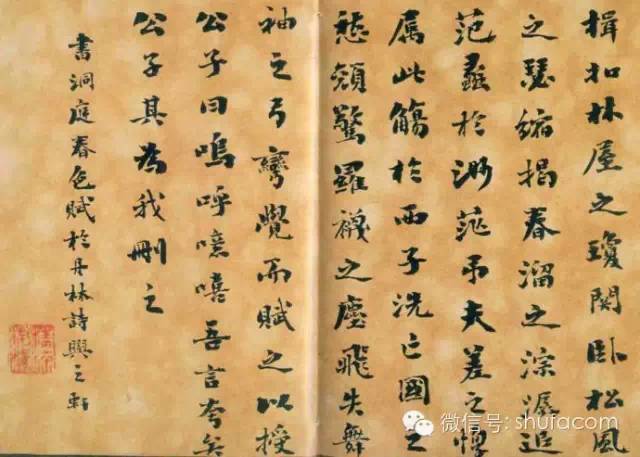 揖扣林屋之瓊関卧松風
之瑟縮揭春溜之淙潺追
范蠡於渺茫吊夫差之惸
属此觴於西子洗亡國之
愁頳驚羅襪之塵飛失舞
袖之弓彎覺而賦之以授
公子曰嗚呼噫嘻吾言夸矣
公子其為我刪之
書洞庭春色賦於丹林詩興之軒
微信号: shufacom